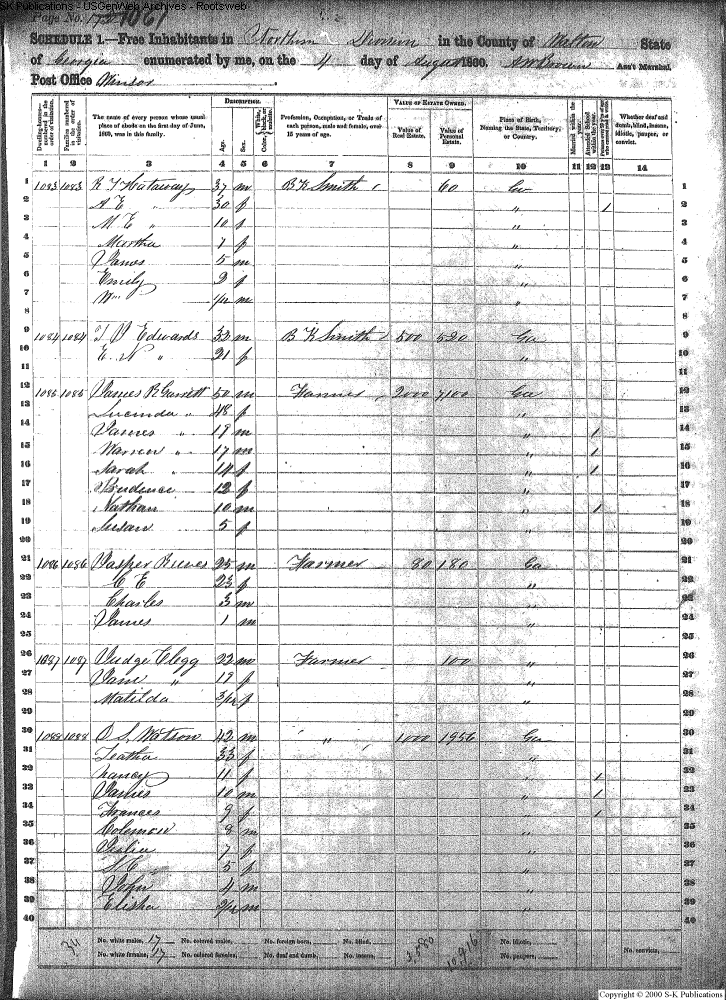 S-K Publications - USGenWeb Archives - Rootsweb
Page No. 173 1061
SCHEDULE 1.—Free Inhabitants in Northern Division in the County of Walton State
of Georgia enumerated by me, on the 4 day of August 1860. Ass't Marshal.
Post Office
DESCRIPTION. VALUE OF ESTATE OWNED.
Dwelling-houses—numbered in the order of visitation. Families numbered in the order of visitation. The name of every person whose usual place of abode on the first day of June, 1860, was in this family. Age. Sex. Color, White, black, or mulatto. Profession, Occupation, or Trade of each person, male and female, over 15 years of age. Value of Real Estate. Value of Personal Estate. Place of Birth, Naming the State, Territory, or Country. Married within the year. Attended School within the year. Whether deaf and dumb, blind, insane, idiotic, pauper, or convict.
1 2 3 4 5 6 7 8 9 10 11 12 13 14
1 1083 1083 R T Hataway 37 m B K Smith 60 Ga 1
2 A E " 30 f " 1 2
3 M E " 10 f " 3
4 Martha 7 f " 4
5 James 5 m " 5
6 Emily 2 f " 6
7 Wm m " 7
8 8
9 1084 1084 Edwards 32 m B K Smith 500 520 Ga 9
10 E N " 21 f " 10
11 11
12 1085 1085 James R Garrett 50 m Farmer 2000 7100 Ga 12
13 Lucinda " 48 f " 13
14 James " 19 m " 1 14
15 Warren " 17 m " 1 15
16 Sarah " 14 f " 1 16
17 Prudence 12 f " 17
18 Nathan 10 m " 1 18
19 Susan 5 f " 19
20 20
21 1086 1086 Jasper Reeves 25 m Farmer 80 180 Ga 21
22 C E 23 f " 22
23 Charles 3 m " 23
24 James 1 m " 24
25 25
26 1087 1087 Judge Clegg 22 m Farmer 100 " 26
27 Jane " 19 f " 27
28 Matilda 3/12 f " 28
29 29
30 1088 1088 O S Watson 42 m " 1000 1956 Ga 30
31 Leatha 33 f " 31
32 Nancy 11 f " 1 32
33 James 10 m " 1 33
34 Frances 9 f " 1 34
35 Colemon 8 m " 35
36 Julia 7 f " 36
37 S E 5 f " 37
38 John 4 m " 38
39 Elisha m " 39
40 40
34 No. white males, 17 No. colored males, No. foreign born, No. blind, 3,580 10,916 No. idiotic, No. convicts,
No. white females, 17 No. colored females, No. deaf and dumb, No. insane, No. paupers,
Copyright © 2000 S-K Publications